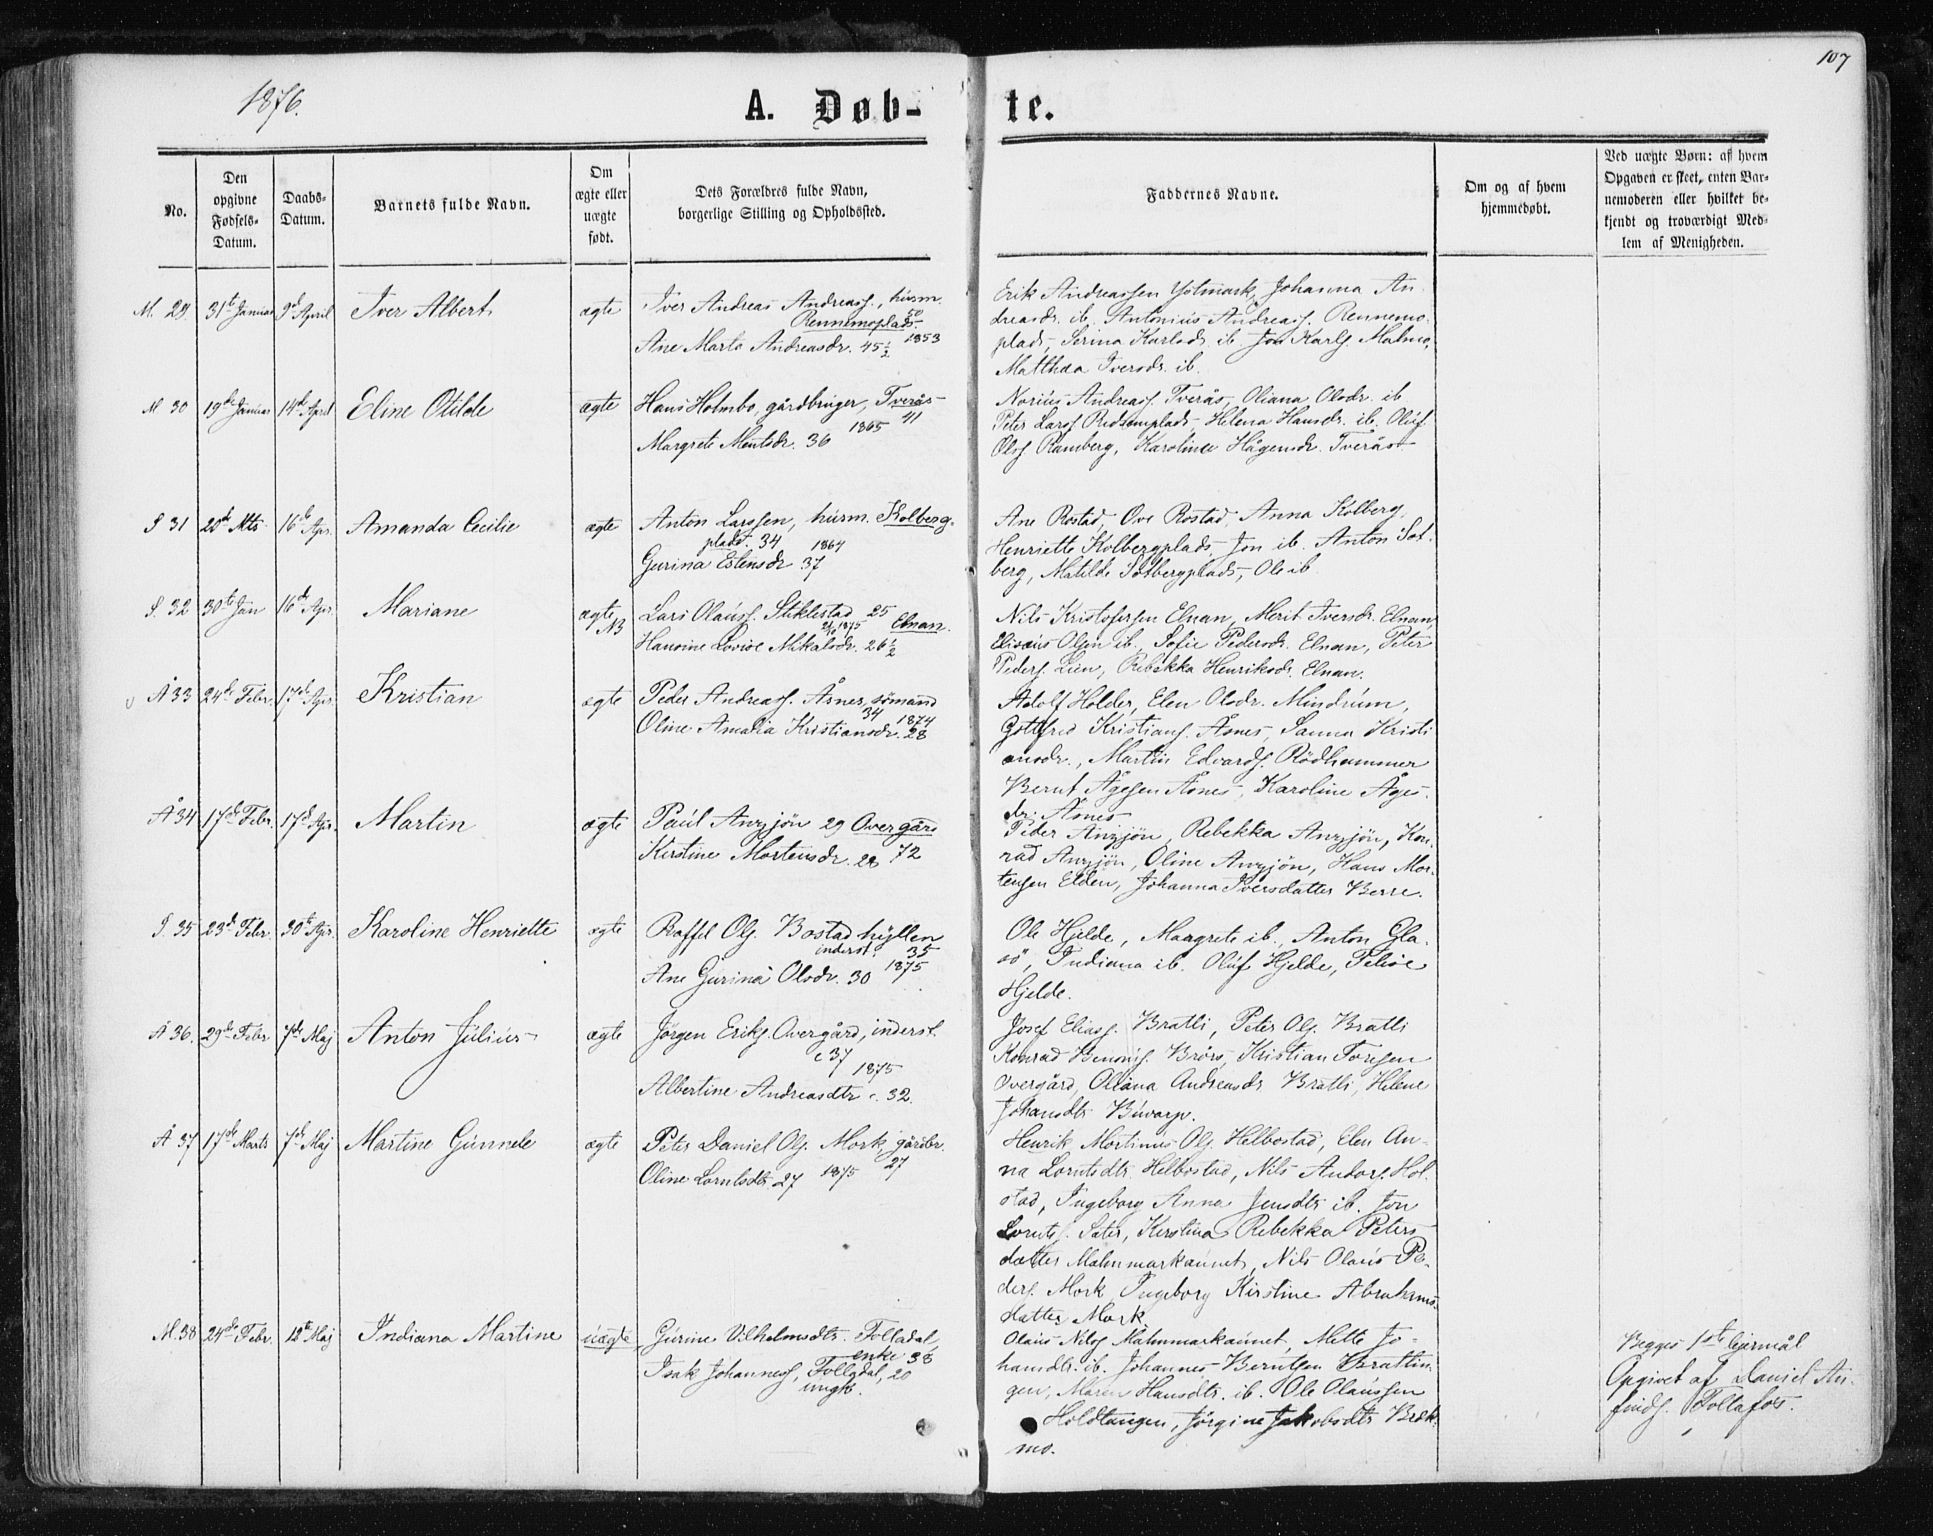 107
1876.
A. Døb-
te.
No.
Den
opgivne
Fødsels-
Datum.
Daabs-
Datum.
Barnets fulde Navn.
Om
ægte eller
uægte
født.
Dets Forældres fulde Navn,
borgerlige Stilling og Opholdssted.
Faddernes Navne.
Om og af hvem
hjemmedøbt.
Ved uægte Børn: af hvem
Opgaven er skeet, enten Bar-
nemoderen eller hvilket be-
kjendt og troværdigt Med-
lem af Menigheden.
M. 29. 31te Januar 9de April Iver Albert ægte Iver Andreas Andreass., husm.
Rennemoplads. 50
Ane Marta Andreasdr. 45½ 1853
Erik Andreassen Holmark, Johanna An-
dreasdr. ib. Antonius Andreass. Rennemo-
plads, Serina Karlsdr. ib. Jon Karls. Malmo,
Matthea Iversdr. ib.
M 30 19de Januar 14de April Eline Otilde ægte Hans Holmbo, gårdbruger, Tverås
41
Margrete Mentsdr. 36 1865
Norius Andreass. Tverås, Oliana Olsdr. ib
Peter Larss. Rødsemplads, Helena Hansdr. ib. Oluf
Olss. Ramberg, Karolina Hågensdr. Tverås
S 31 20de Mts 16de Apr. Amanda Cecilie ægte Anton Larssen, husm. Kolberg-
plads. 34
Gurina Estensdr 37 1864
Ane Rostad, Ove Rostad, Anna Kolberg,
Henriette Kolbergplads, Jon ib. Anton Sol-
berg, Matilde Solbergplads, Ole ib.
S. 32 30te Jan 16de Apr. Mariane ægte NB Lars Olauss. Stiklestad 25
1875 Elnan.
Hansine Lovise Mikalsdr. 26½
Nils Kristofersen Elnan, Merit Iversdr. Elnan
Eliseus Olsen ib., Sofie Pedersdr. Elnan, Peter
Peders. Lien, Rebekka Henriksdr. Elnan.
Å 33 24de Febr. 17de Apr. Kristian ægte Peder Andreass. Åsnes, sömand
34 1874
Oline Amalia Kristiansdr. 28
Adolf Holder, Elen Olsdr. Mindrum,
Gottfred Kristians. Åsnes, Sanna Kristi
ansdr., Martin Edvards. Rödhammer
Bernt Ågesen Åsnes, Karoline Åges-
dr. Åsnes
Å 34 17de Febr. 17de Apr. Martin ægte Paul Anzjön 29 Overgård
Kirstine Mortensdr. 28 72
Peder Anzjön, Rebekka Anzjön, Kon-
rad Anzjön, Oline Anzjön, Hans Mor-
tensen Elden, Johanna Iversdatter Berre.
S. 35 23de Febr. 30te Apr. Karoline Henriette ægte Raffel Ols. Bostad hyllen
inderst. 35
Ane Gurina Olsdr. 30 1875
Ole Hjelde, Maagrete ib., Anton Gla-
sö, Indiana ib. Oluf Hjelde, Pelise
Hjelde.
Å 36. 29de Febr 7de Maj Anton Julius ægte Jörgen Eriks. Overgård, inderst.
c 37
1875
Albertine Andreasdtr c. 32.
Josef Eliass. Bratli, Peter Ols. Bratli
Konrad Benonis. Brörs, Kristian Toresen
Overgård, Oliana Andreasdr Bratli, Helene
Johansdtr Buvarp.
Å 37 17de Marts 7de Maj Martine Gunnele ægte Peter Daniel Ols. Mork, gårdbr.
27
Oline Lorntsdtr. 27 1875
Henrik Martinus Ols. Helbostad, Elen An-
na Lorntsdtr Helbostad, Nils Anders. Hol-
stad, Ingeborg Anna Jensdtr ib. Jon
Lornts. Sæter, Kerstina Rebekka Peters
datter Malmmarkaunet, Nils Olaus Pe-
ders. Mork Ingeborg Kirstine Abrahams-
datter Mork.
M. 38 24de Febr. 12te Maj Indiana Martine uægte Gurine Vilhelmsdtr. Folladal
enke 38
Isak Johanness, Folladal, 20
ungk.
Olaus Nilss Malmmarkaunet, Mette Jo-
hansdtr. ib. Johannes Berntsen Brattin-
gen, Maren Hansdtr. ib. Ole Olaussen
Holdtangen, Jörgine Jakobsdtr Bræk-
mo.
Begges 1ste lejermål
Opgivet af Daniel An-
finds. Follafos.